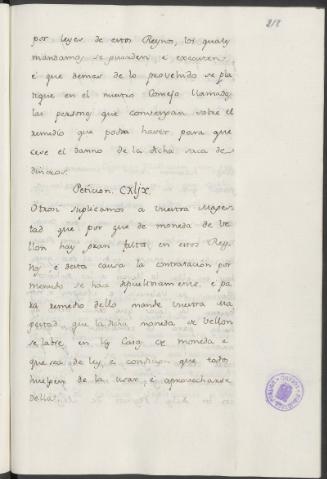 218
por leyes de estos Reynos, los quales
mandamos se guarden, e executen:
e que demas de lo proveheido se pla
tique en el nuestro Consejo llamadas
las personas que convengan sobre el
remedio que podra haver, para que
cese el danno de la dicha saca de
dineros.
Peticion. CXljx.
Otrosi suplicamos a vuestra mages
tad que por que de moneda de ve
llon hay gran falta en estos Rey
nos e desta causa la contratacion por
menudo se hace dificultosamente, e pa
ra remedio dello mande vuestra ma
gestad, que la dicha moneda de vellon
se labre en las Casas de moneda e
que sea de ley, e condicion que todos
huelgen de la usar, e aprovecharse
della.